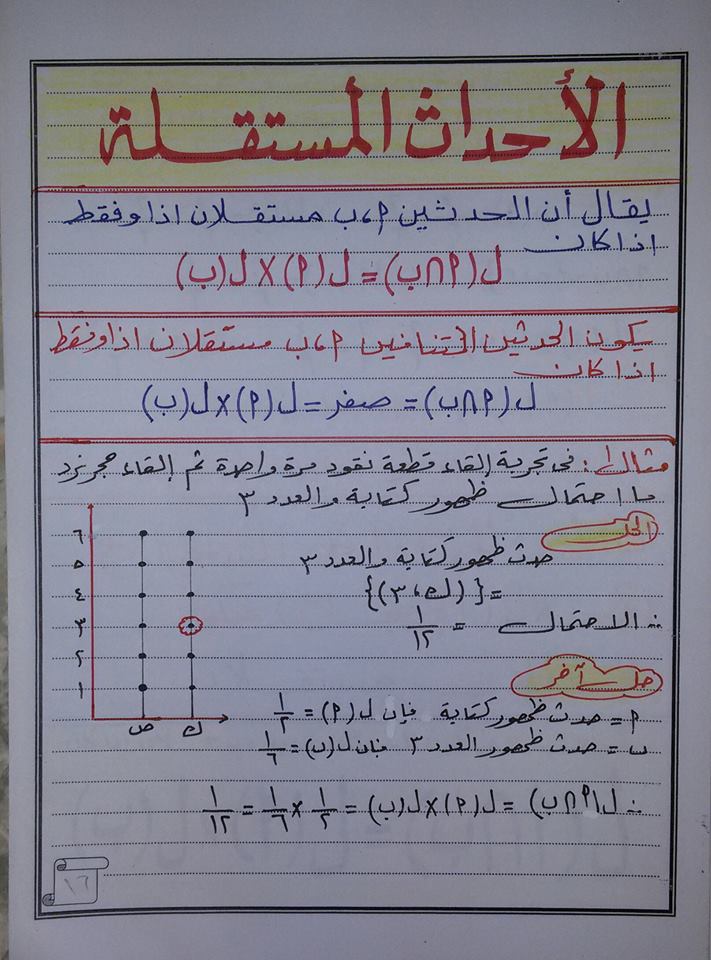 الأحداث المستقلة
يقال أن الحدثين م، ب مستقلان اذا وفقط
اذا كان
ل(م∩ب) = ل(م) × ل(ب)
يكون الحدثين المتنافيين م، ب مستقلان اذا وفقط
اذا كان
ل(م∩ب) = صفر = ل(م) × ل(ب)
مثال ١: فى تجربة إلقاء قطعة نقود مرة واحدة ثم إلقاء حجر نرد
ما احتمال ظهور كتابة والعدد ٣
الحل
حدث ظهور كتابة والعدد ٣
= {(ك، ٣)}
∴ الاحتمال = ١/١٢
٦
٥
٤
٣
٢
١
ص ك
حل آخر
م = حدث ظهور كتابة فإن ل(م) = ١/٢
ب = حدث ظهور العدد ٣ فإن ل(ب) = ١/٦
∴ ل(م∩ب) = ل(م) × ل(ب) = ١/٢ × ١/٦ = ١/١٢
١٦